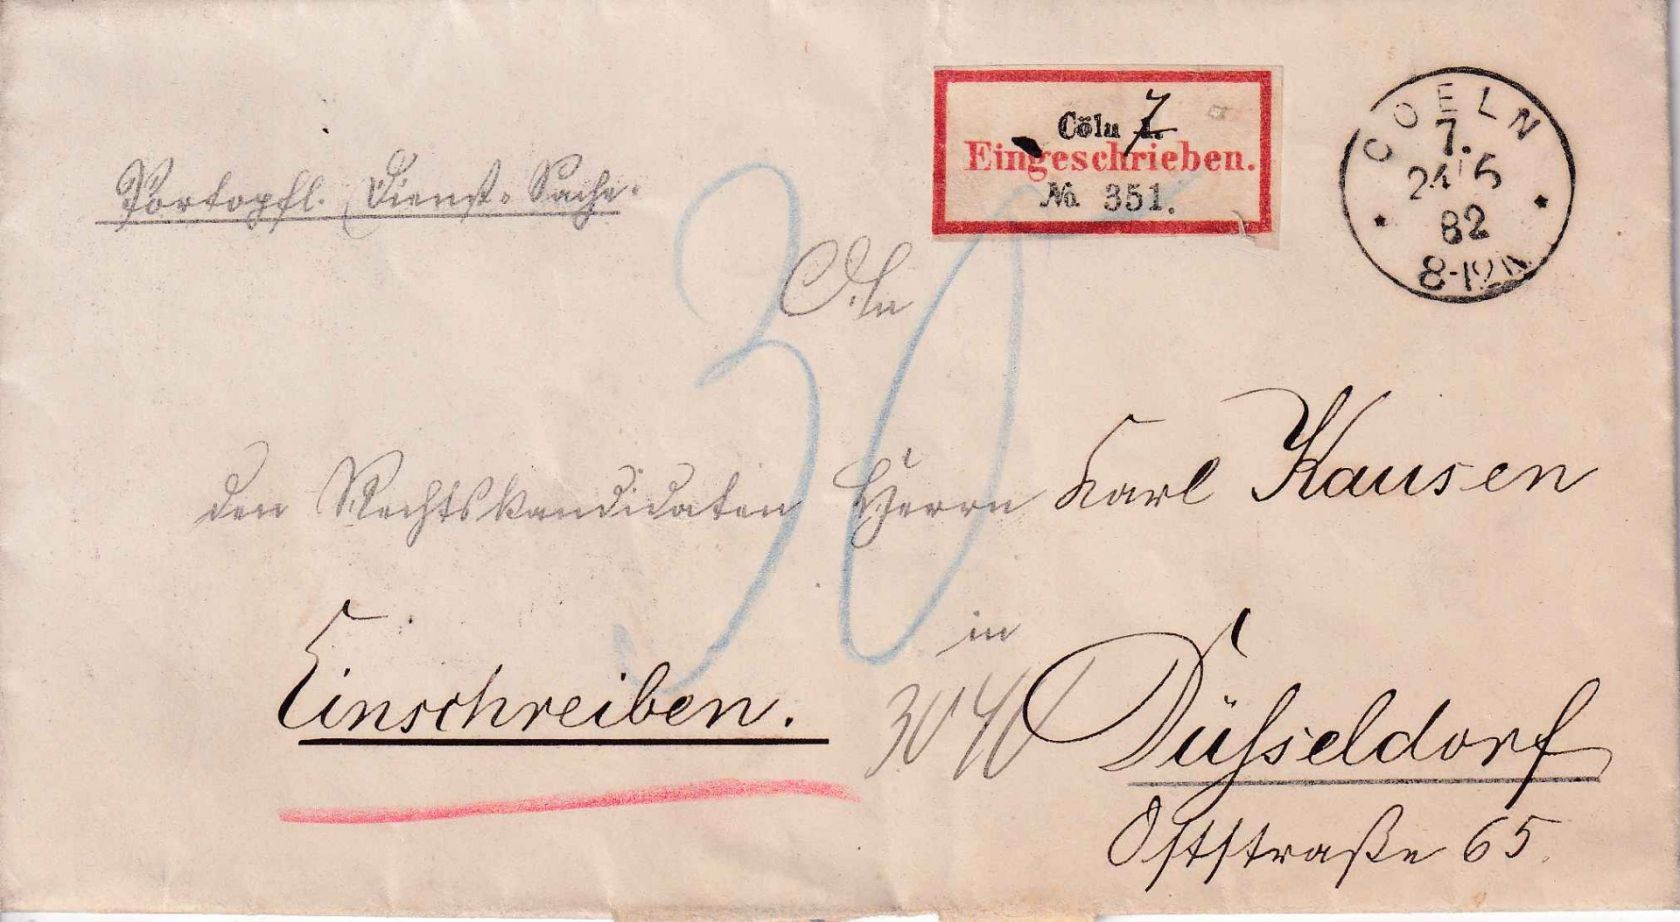 Cöln 1. 7
Eingeschrieben.
No. 351.
COELN
7.
24/5
82
8-12 N
Portopfl. Dienst-Sache.
An
den Rechtskandidaten Herrn Karl Kausen
30
in
Einschreiben.
Düsseldorf
Oststraße 65.